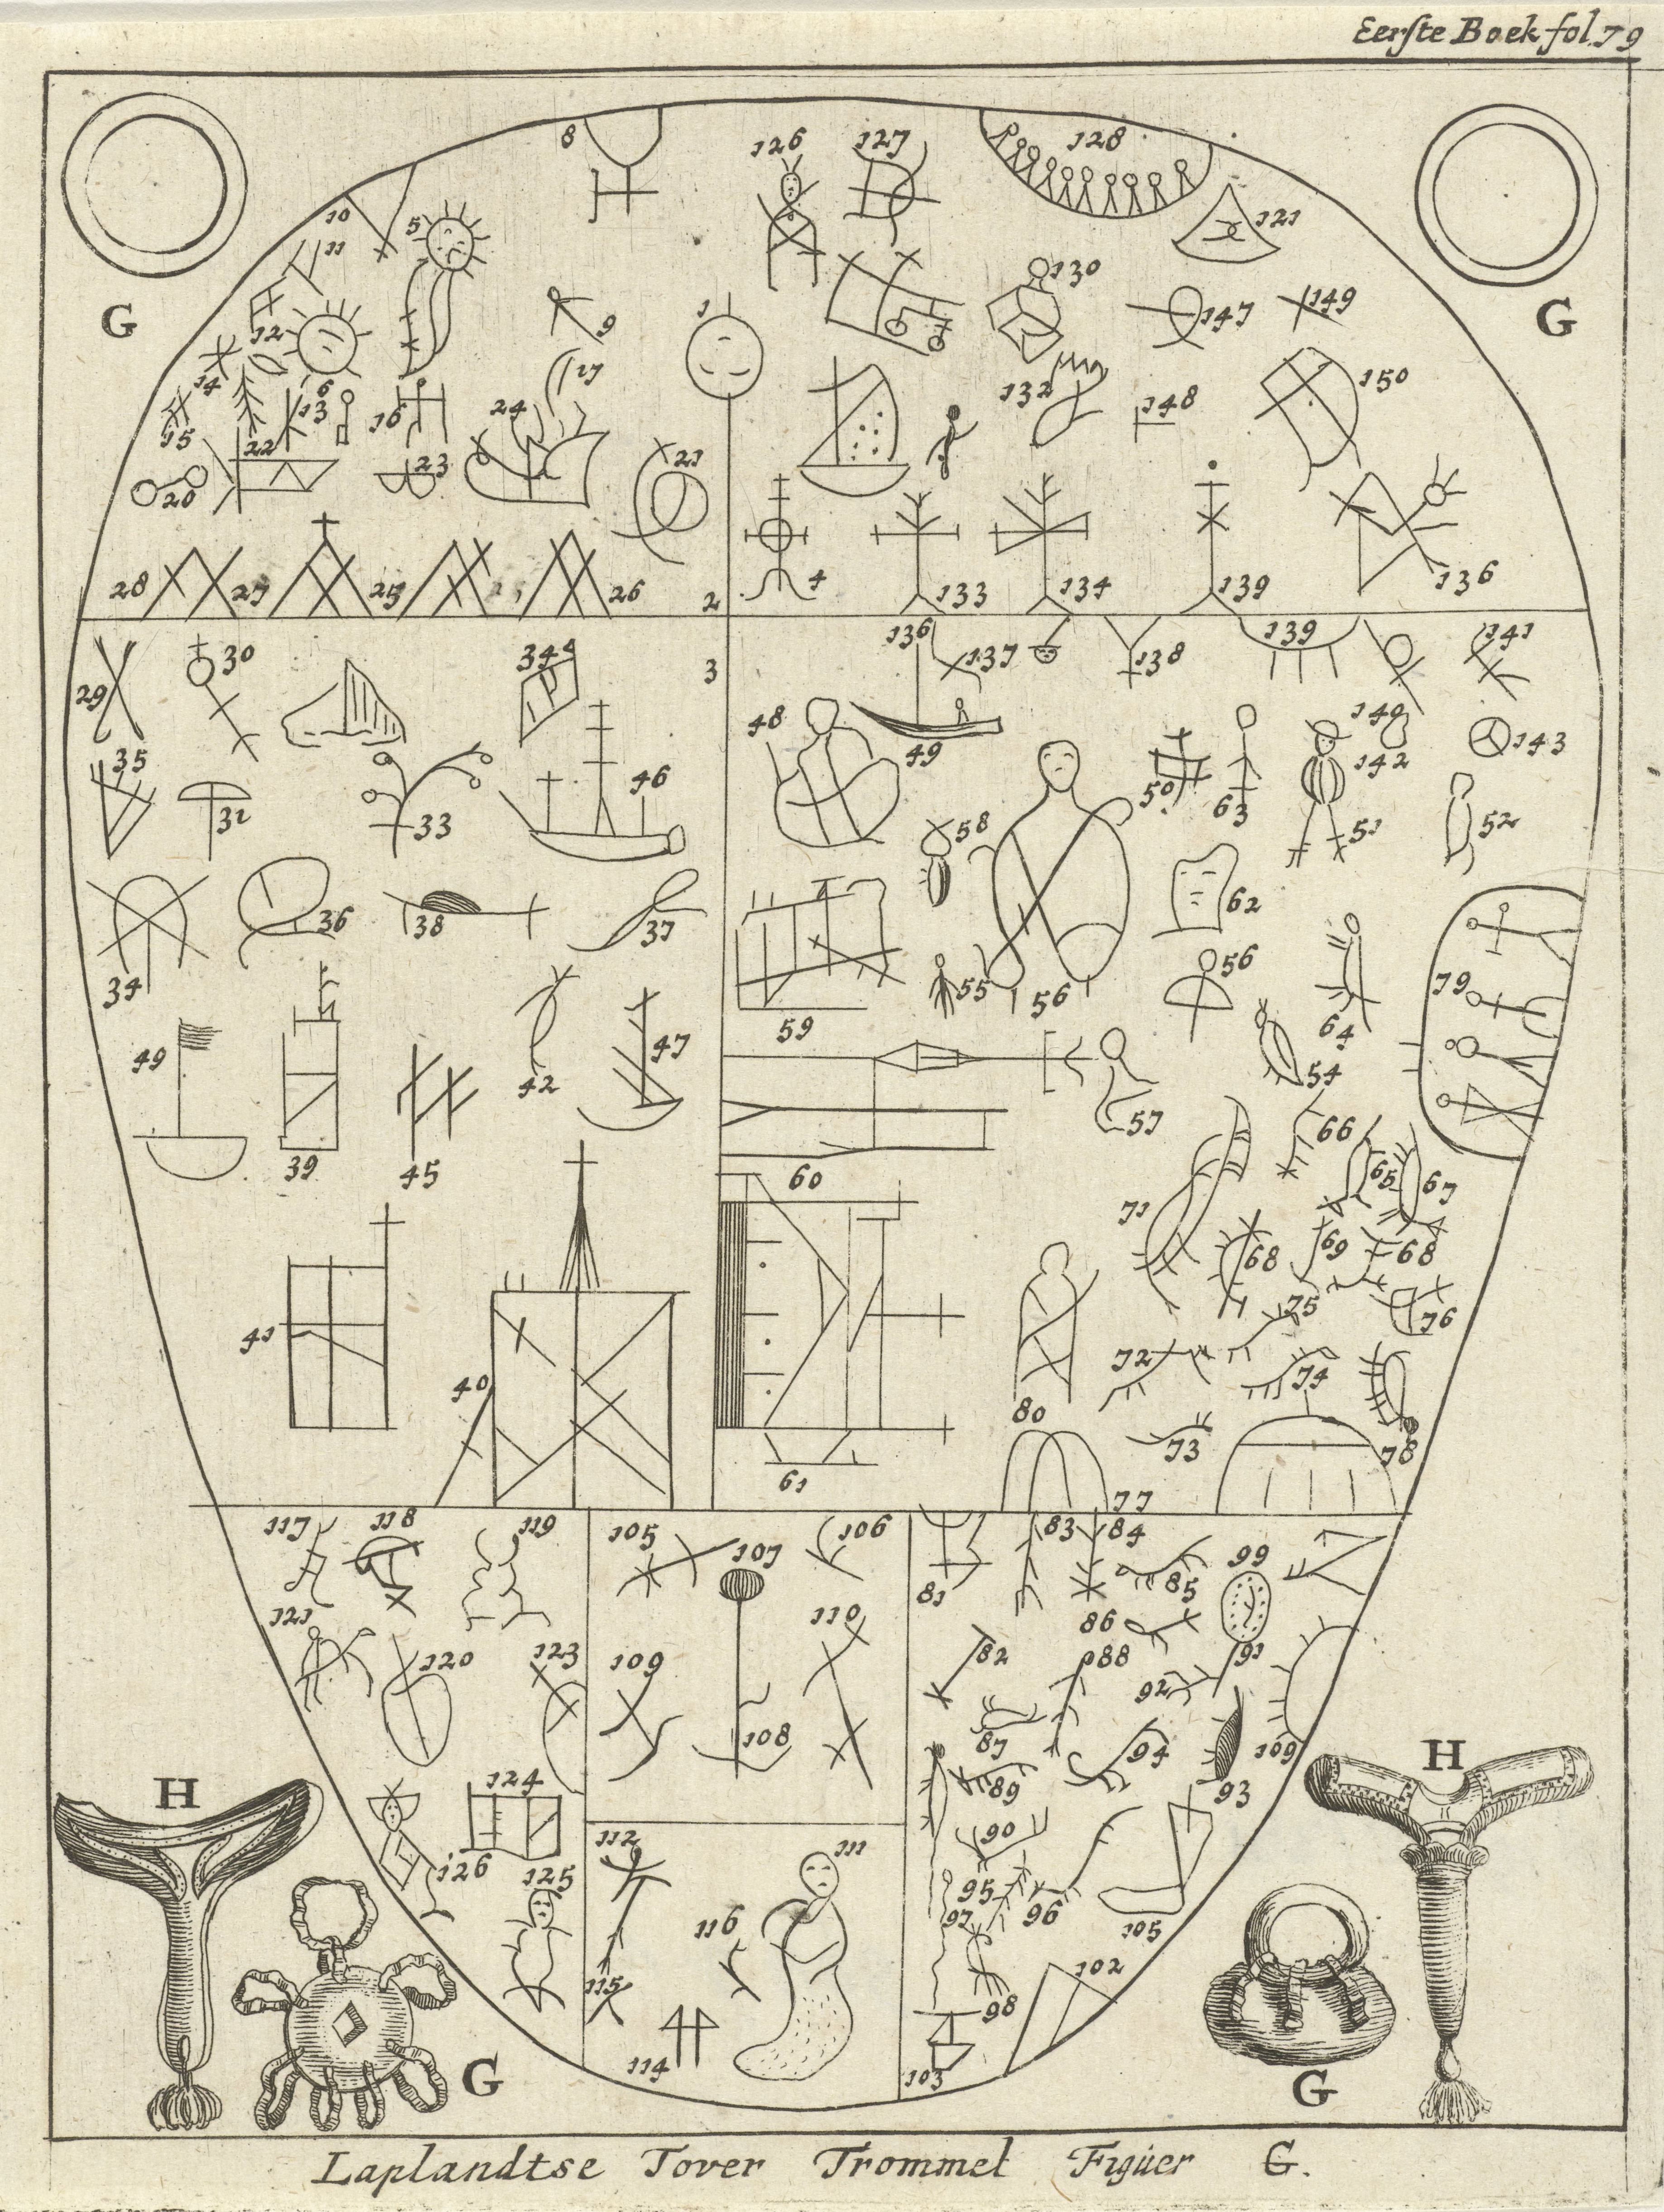 Eerste Boek fol. 79
8 126 127 128
10 5 121
11 130
G 12 9 1 147 149 G
14 6 17 132 150
15 13 16 24 148
22 23 21
20
28 27 25 26 2 4 133 134 139 136
29 30 344 3 136 137 138 139 141
35 48 49 140 143
32 33 46 58 50 63 142 51 52
36 38 37 62
34 55 56 56 79
49 59 64
42 47 54
39 45 57
60 66
65 67
71 69
68 68
41 75 76
72 74
40 80
73 78
61 77
117 118 119 105 107 106 83 84 99
81 85
121 120 123 110 86
109 82 88 91
92
108 87 94 109
H 89 93 H
124 112 111 90
126 125 95
116 97 96 105
115 102
98
114 G 103 G
Laplandtse Tover Trommel Figuer G.